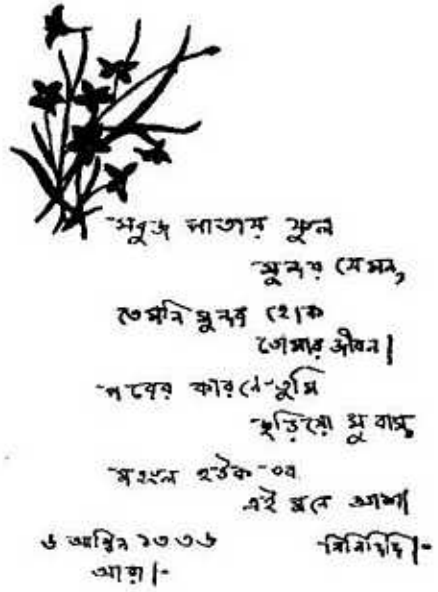 সবুজ পাতায় ফুল
সুন্দর যেমন,
তেমনি সুন্দর হোক
তোমার জীবন।
পরের কারনে তুমি
ছড়িয়ো সুবাস,
মহৎ হউক
এই মনে আশা।
৬ আশ্বিন ১৩৩৬
আরা।-